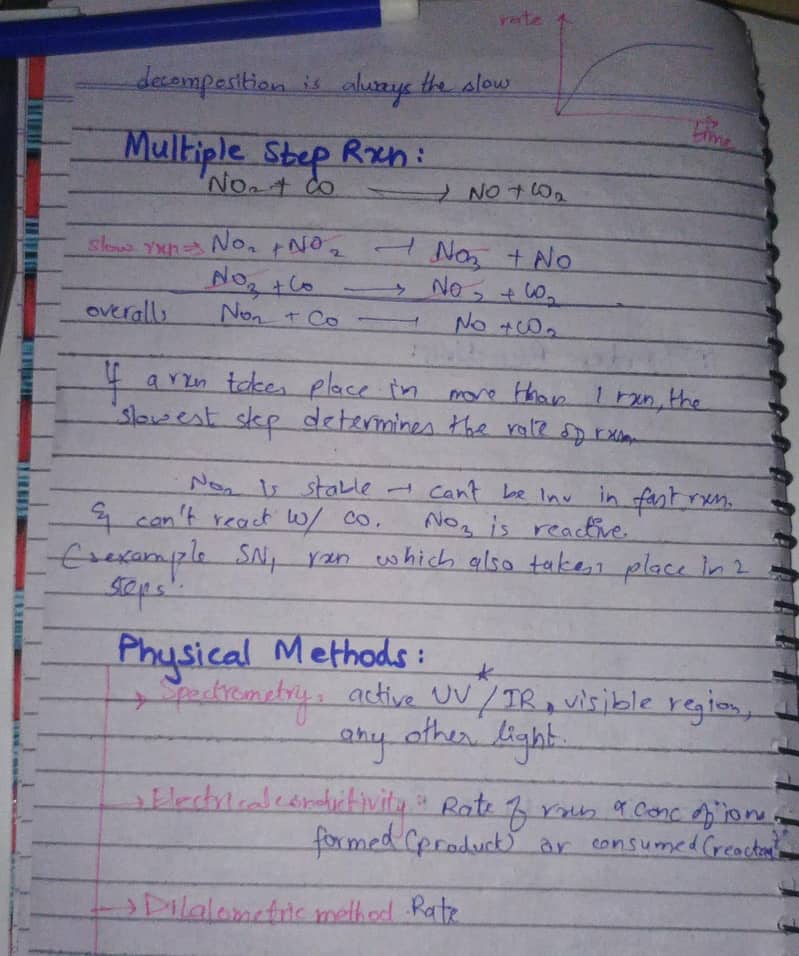 rate
decomposition is always the slow
time
Multiple Step Rxn:
NO₂ + CO → NO + CO₂
slow rxn ⇒ NO₂ + NO₂ → NO₃ + NO
NO₃ + CO → NO₂ + CO₂
overall, NO₂ + CO → NO + CO₂
If a rxn takes place in more than 1 rxn, the
slowest step determines the rate of rxn
NO₂ is stable → can't be inv in fast rxn.
& can't react w/ CO. NO₃ is reactive.
example SN₁ rxn which also takes place in 2
steps.
Physical Methods:
→ Spectrometry: active UV*/IR, visible region,
any other light.
→ Electrical conductivity: Rate of rxn α conc of ion
formed (product) or consumed (reactant)
→ Dilatometric method. Rate